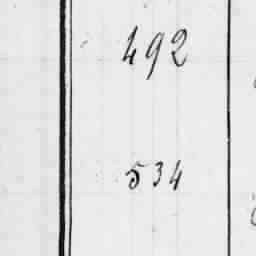 492
534